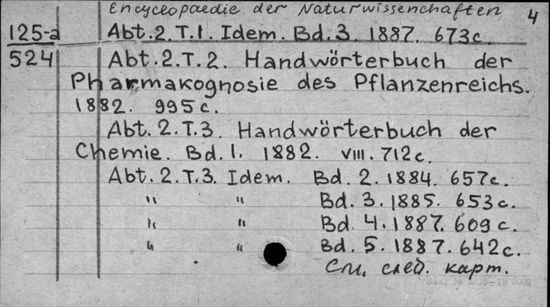 Encyclopaedie der Naturwissenschaften 4
125-a Abt. 2. T. 1. Idem. Bd. 3. 1887. 673 с.
524 Abt. 2. T. 2. Handwörterbuch der
Pharmakognosie des Pflanzenreichs.
1882. 995 с.
Abt. 2. T. 3. Handwörterbuch der
Chemie. Bd. 1. 1882. VIII. 712 с.
Abt. 2. T. 3. Idem. Bd. 2. 1884. 657 с.
" " Bd. 3. 1885. 653 с.
" " Bd. 4. 1887. 609 с.
" " Bd. 5. 1887. 642 с.
См. след. карт.